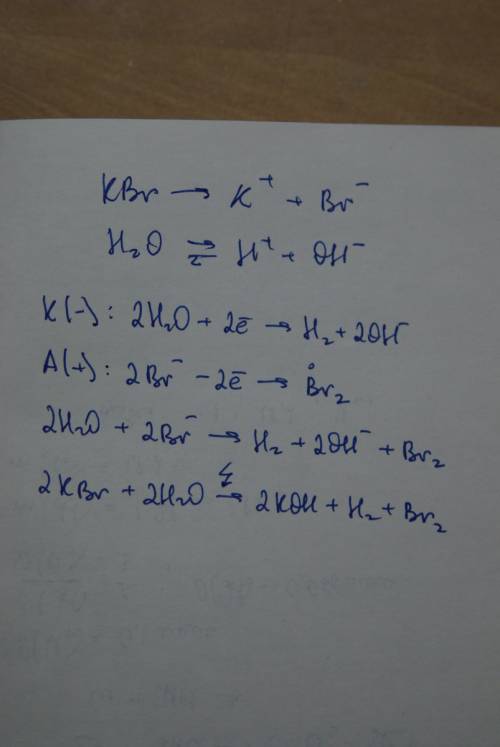 KBr → K⁺ + Br⁻
H₂O ⇄ H⁺ + OH⁻
K(-): 2H₂O + 2ē → H₂ + 2OH⁻
A(+): 2Br⁻ - 2ē → Br₂⁰
2H₂O + 2Br⁻ → H₂ + 2OH⁻ + Br₂
2KBr + 2H₂O → 2KOH + H₂ + Br₂